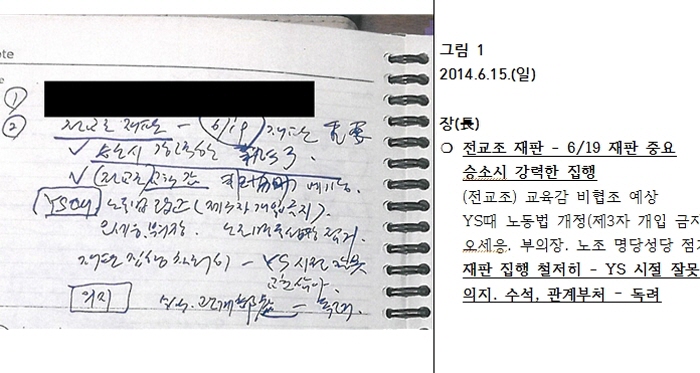 ①
②
전교조 재판 - 6/19 재판 重要
✓ 승소시 강력한 집행.
YS때 노동법 개정 (제3자 개입 금지).
오세응. 부의장.
재판 집행 철저히 - YS 시절 잘못
의지 수석. 관계부처 - 독려.
그림 1
2014.6.15.(일)
장(長)
❍ 전교조 재판 - 6/19 재판 중요
승소시 강력한 집행
(전교조) 교육감 비협조 예상
YS때 노동법 개정(제3자 개입 금지
오세응. 부의장. 노조 명당성당 점거
재판 집행 철저히 - YS 시절 잘못
의지. 수석, 관계부처 - 독려